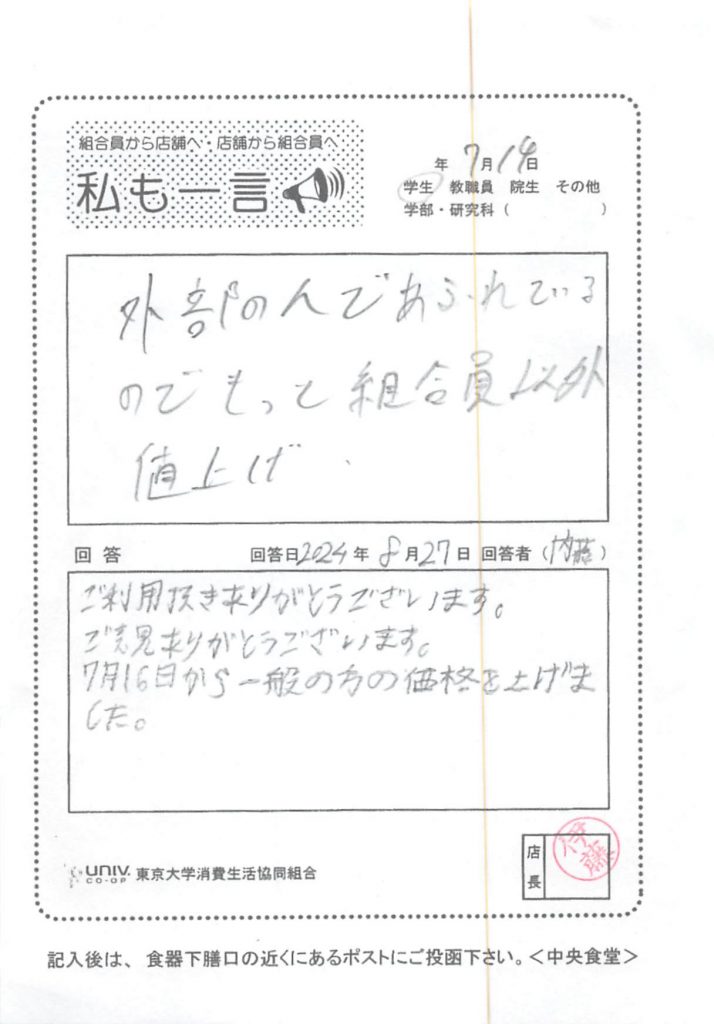 組合員から店舗へ・店舗から組合員へ
私も一言
年 7月14日
学生 教職員 院生 その他
学部・研究科( )
外部の人であふれている
のでもっと組合員以外
値上げ.
回答 回答日2024年 8月27日 回答者(内藤)
ご利用頂きありがとうございます。
ご意見ありがとうございます。
7月16日から一般の方の価格を上げま
した。
UNIV. CO-OP 東京大学消費生活協同組合
店長
伊藤
記入後は、食器下膳口の近くにあるポストにご投函下さい。<中央食堂>